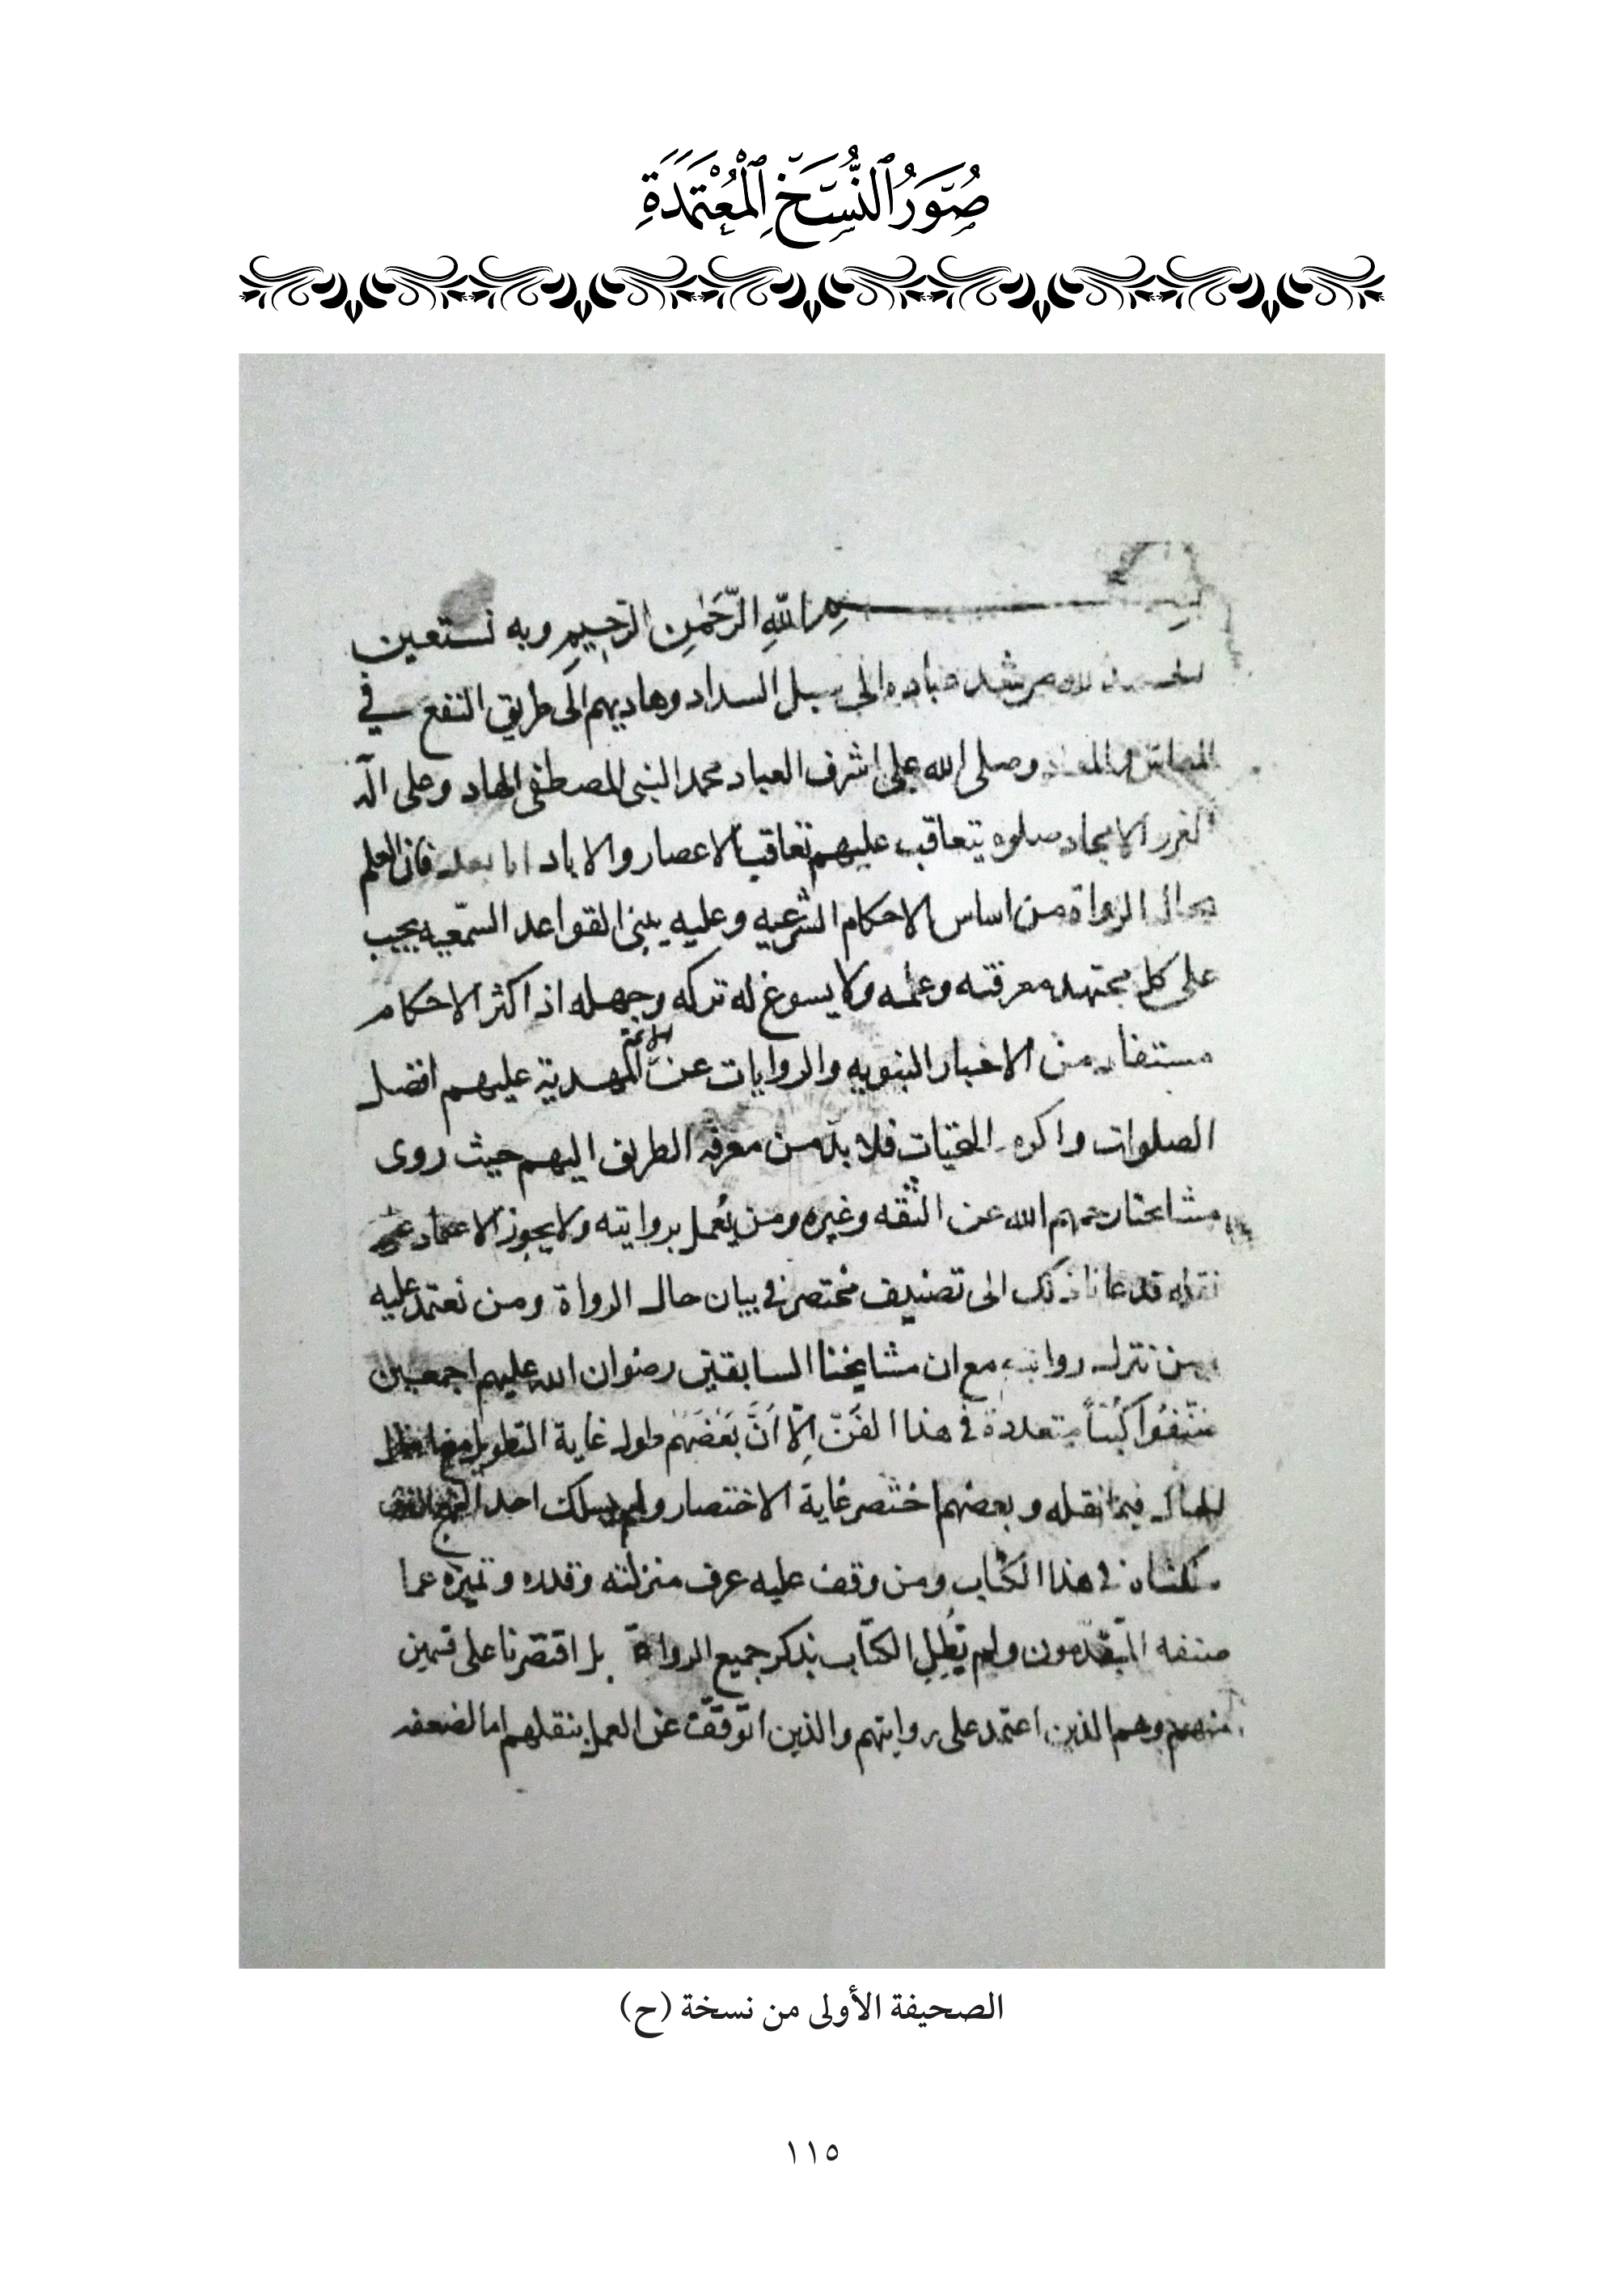 صُوَرُ ٱلنُّسَخِ ٱلْمُعْتَمَدَةِ
بسم الله الرَّحْمٰنِ الرَّحِيمِ وبه نستعين
الحمد لله مرشد عباده الى سبل السداد وهاديهم الى طريق النفع في
المعاش والمعاد وصلى الله على اشرف العباد محمد النبى المصطفى الهاد وعلى آله
الغرر الامجاد صلوه تتعاقب عليهم تعاقب الاعصار والاباد اما بعد فان العلم
بحال الرواة من اساس الاحكام الشرعيه وعليه يبنى القواعد السمّعيه يجب
على كل مجتهد معرفته وعلمه ولا يسوغ له تركه وجهله اذ اكثر الاحكام
مستفاد من الاخبار النبويه والروايات عن الائمة المهدية عليهم افضل
الصلوات واكرم التحيات فلا بدّ من معرفه الطريق اليهم حيث روى
مشايخنا رحمهم الله عن الثقه وغيره ومن يُعمل بروايته ولا يجوز الاعتماد على
نقله قدعانا ذلك الى تصنيف مختصر في بيان حال الرواة ومن نعتمد عليه
ومن نترك روايته مع ان مشايخنا السابقين رضوان الله عليهم اجمعين
صنّفوُا كُتباً متعددة في هذا الفَنّ اِلّا اَنَّ بَعْضَهم طول غاية التطويل مع
الحال فيما نقله وبعضهم اختصر غاية الاختصار ولم يسلك احد النهج الذى
سلكناه في هذا الكتاب ومن وقف عليه عرف منزلته وقدره وتميزه عما
صنفه المتقدمون ولم نُطِلِ الكتاب بذكر جميع الرواة بل اقتصرنا على قسمين
منهم وهم الذين اعتمد على روايتهم والذين اتوقّف عن العمل بنقلهم اما لضعفه
الصحيفة الأولى من نسخة (ح)
١١٥